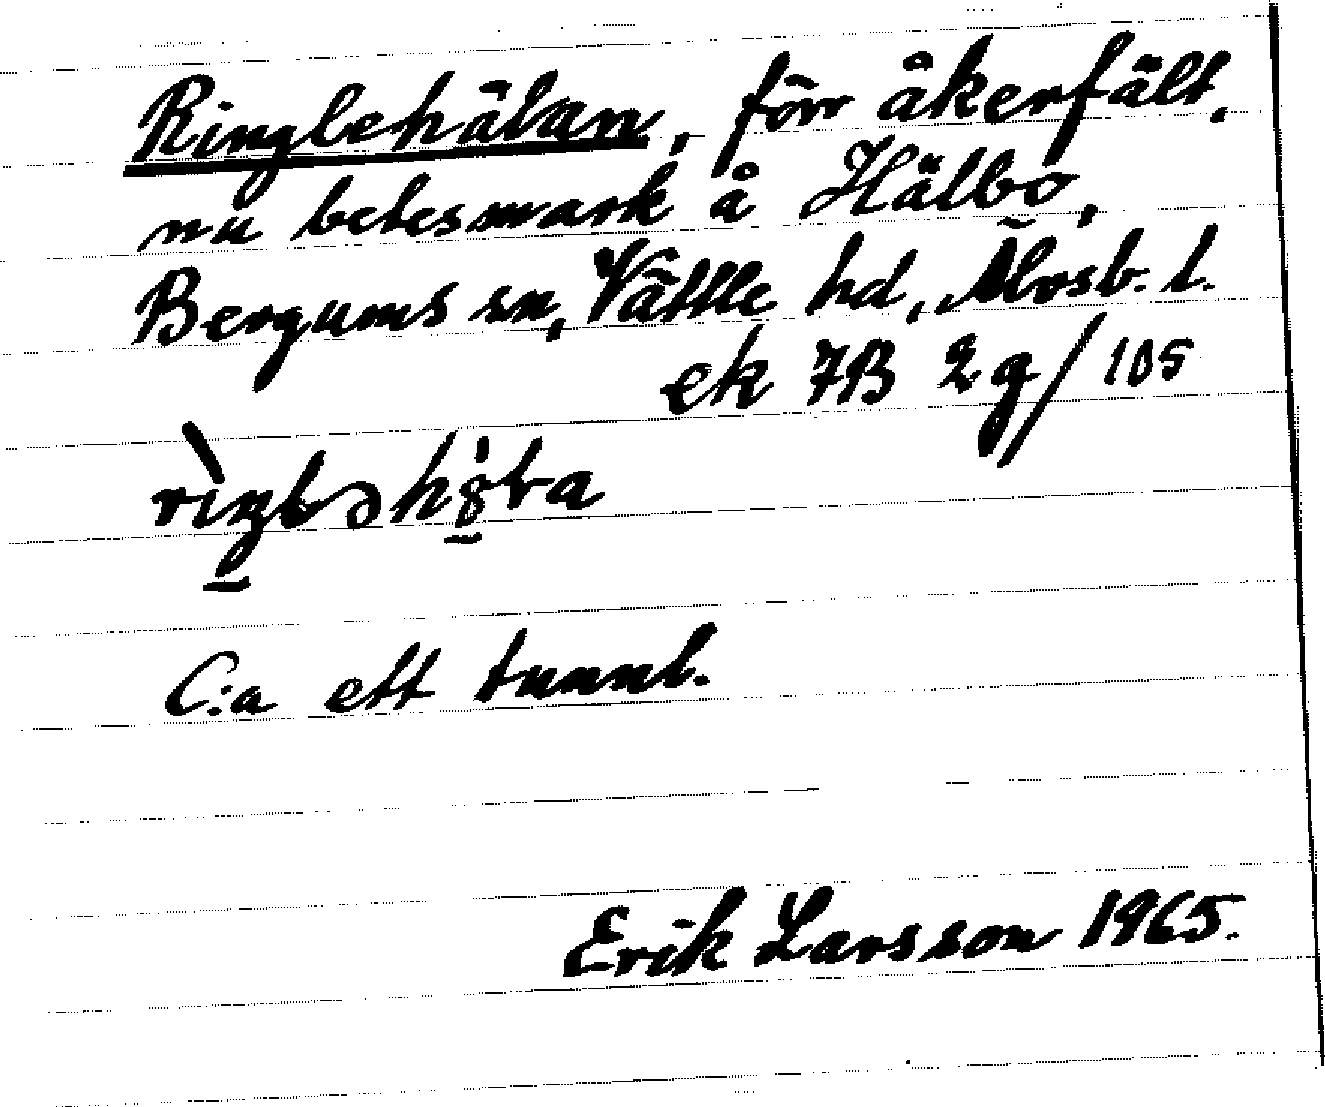 Ringlehålan, förr åkerfält,
nu betesmark å Hälbo,
Bergums sn, Vättle hd, Älvsb. l.
ek 7B 2g/105
C:a ett tunnl.
Erik Larsson 1965.